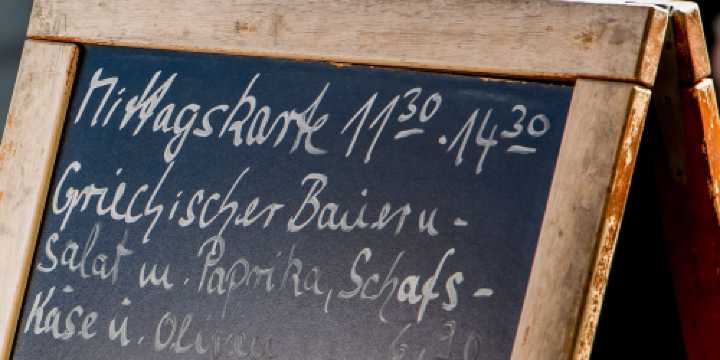 Mittagskarte 11 30 - 14 30
Griechischer Bauern-
salat m. Paprika, Schafs-
Käse u. Oliven